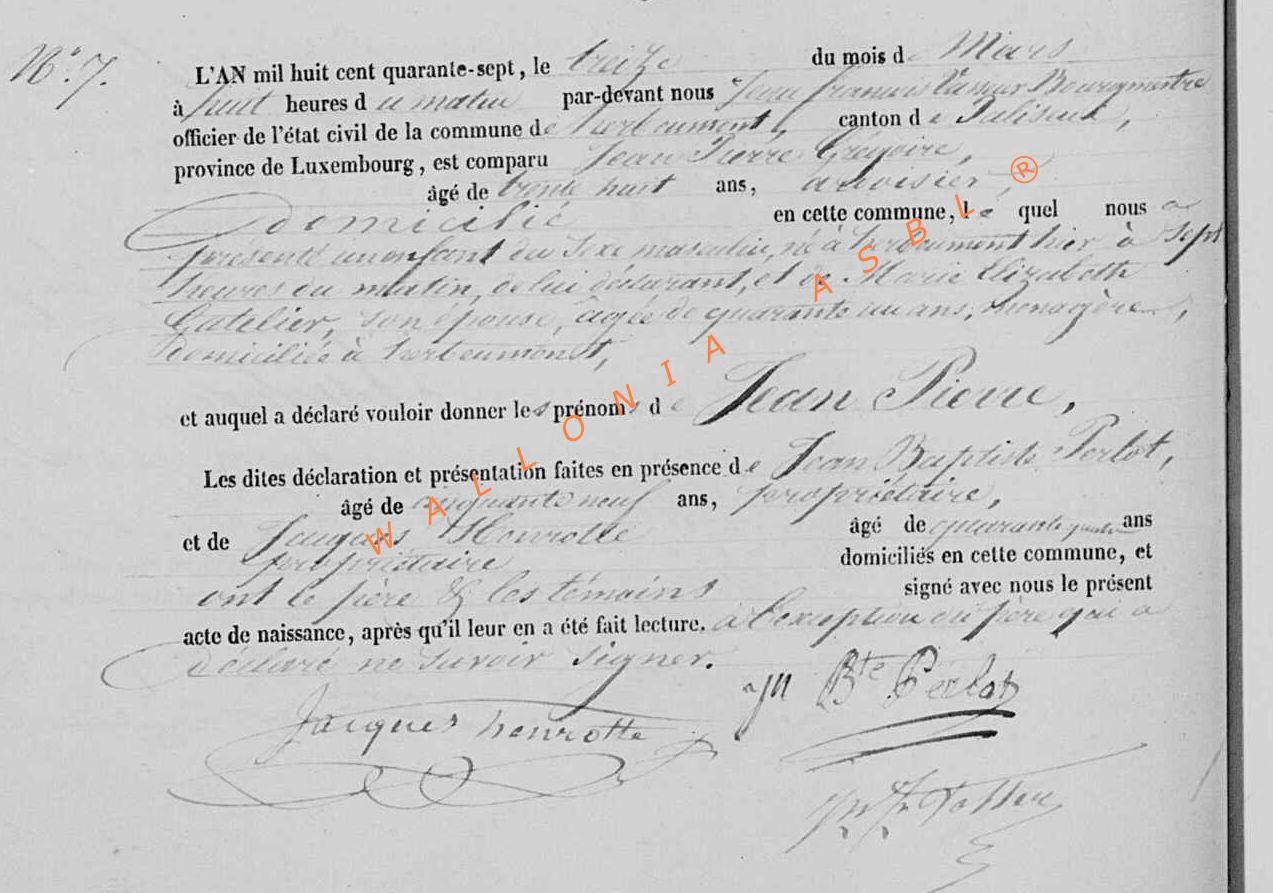 N° 7.
L'AN mil huit cent quarante-sept, le treize du mois de Mars
à huit heures du matin par-devant nous Jean francois Bourgmestre
officier de l'état civil de la commune de herbeumont, canton de Paliseul,
province de Luxembourg, est comparu Jean Pierre Grégoire,
âgé de trente huit ans, ardoisier,
Domicilié en cette commune, le quel nous a
présenté un enfant du sexe masculin, né à herbeumont hier à sept
heures du matin, de lui déclarant, et de Marie Elizabeth
Gatelier, son épouse, âgée de quarante un ans, menagère,
domiciliée à herbeumont,
et auquel a déclaré vouloir donner les prénoms de Jean Pierre,
Les dites déclaration et présentation faites en présence de Jean Baptiste Perlot,
âgé de cinquante neuf ans, propriétaire,
et de Jacques Henrotte âgé de quarante quatre ans
propriétaire domiciliés en cette commune, et
ont le père & les témoins signé avec nous le présent
acte de naissance, après qu'il leur en a été fait lecture. à l'exception du père qui a
déclaré ne savoir signer.
Jn Bte Perlot
Jacques henrotte
WALLONIA ASBL ®